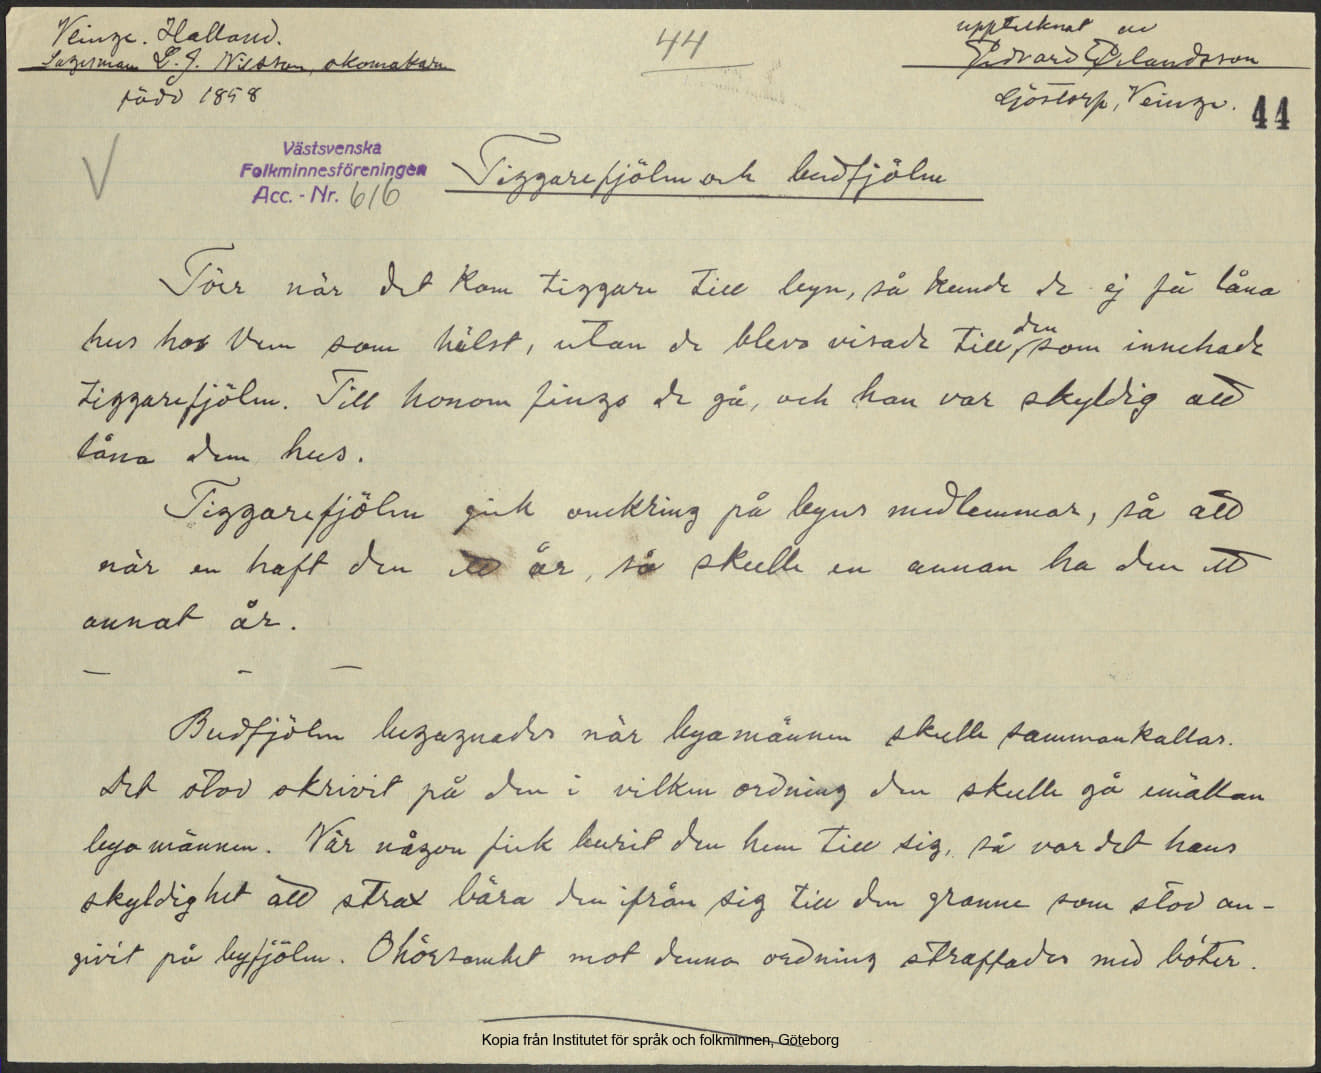 Veinge. Halland.
Sagesman L. J. Nilsson, skomakare
född 1858
44
upptecknat av
Edvard Erlandsson
Göstorp, Veinge.
44
V
Västsvenska
Folkminnesföreningen
Acc. - Nr. 616
Tiggarefjöln och budfjöln
Förr när det kom tiggare till byn, så kunde de ej få låna
hus hos vem som hälst, utan de blevo visade till den som innehade
tiggarefjöln. Till honom fingo de gå, och han var skyldig att
låna dem hus.
Tiggarefjöln gick omkring på byns medlemmar, så att
när en haft den ett år, så skulle en annan ha den ett
annat år.
— - —
Budfjöln begagnades när byamännen skulle sammankallas.
Det stod skrivit på den i vilken ordning den skulle gå emällan
byamännen. När någon fick burit den hem till sig, så var det hans
skyldighet att strax bära den ifrån sig till den granne som stod an-
givit på byfjöln. Ohörsamhet mot denna ordning straffades med böter.
Kopia från Institutet för språk och folkminnen, Göteborg